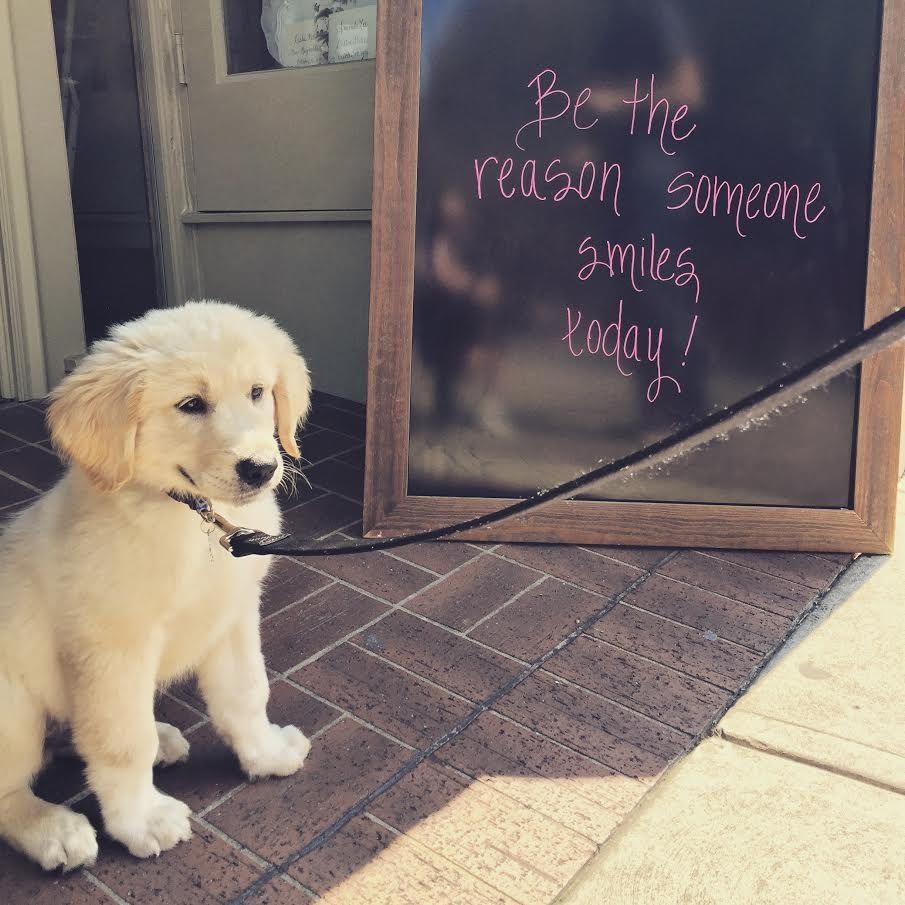 Be the
reason someone
smiles
today!